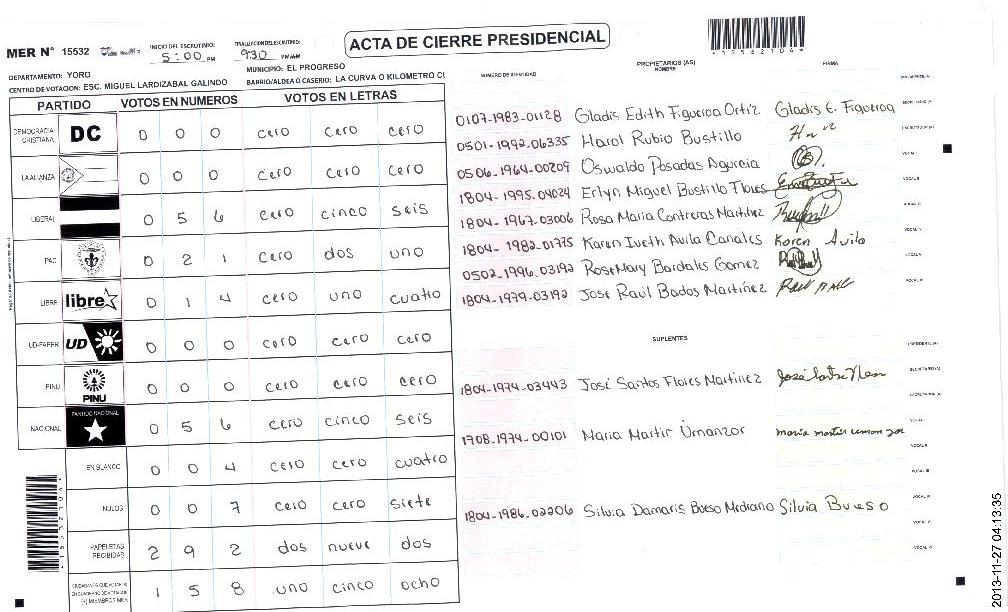 ACTA DE CIERRE PRESIDENCIAL
MER N° 15532
INICIO DEL ESCRUTINIO: 5:00 PM
FINALIZACION DEL ESCRUTINIO: 930 PM/AM
*15532104*
DEPARTAMENTO: YORO
MUNICIPIO: EL PROGRESO
CENTRO DE VOTACION: ESC. MIGUEL LARDIZABAL GALINDO
BARRIO/ALDEA O CASERIO: LA CURVA O KILOMETRO CU
PARTIDO VOTOS EN NUMEROS VOTOS EN LETRAS
DEMOCRACIA CRISTIANA DC 0 0 0 cero cero cero
LA ALIANZA 0 0 0 cero cero cero
LIBERAL 0 5 6 cero cinco seis
PAC 0 2 1 cero dos uno
LIBRE libre 0 1 4 cero uno cuatro
UD-FAPER UD 0 0 0 cero cero cero
PINU PINU 0 0 0 cero cero cero
NACIONAL PARTIDO NACIONAL 0 5 6 cero cinco seis
EN BLANCO 0 0 4 cero cero cuatro
NULOS 0 0 7 cero cero siete
PAPELETAS RECIBIDAS 2 9 2 dos nueve dos
CIUDADANOS QUE VOTARON
(+) MIEMBROS MER 1 5 8 uno cinco ocho
*15532104*
PROPIETARIOS (AS)
NUMERO DE IDENTIDAD NOMBRE FIRMA
PRESIDENTE(A)
0107-1983-01128 Gladis Edith Figueroa Ortiz Gladis E. Figueroa SECRETARIO(A)
0501-1992-06335 Harol Rubio Bustillo ESCRUTADOR(A)
0506-1964-00209 Oswaldo Posadas Agurcia VOCAL I
1804-1995-04024 Erlyn Miguel Bustillo Flores VOCAL II
1804-1967-03006 Rosa Maria Contreras Martinez VOCAL III
1804-1982-01775 Karen Iveth Avila Canales Karen Avila VOCAL IV
0502-1996-03192 RoseMary Bardales Gomez VOCAL V
1804-1979-03192 Jose Raúl Bados Martínez VOCAL VI
SUPLENTES
PRESIDENTE(A)
1804-1974-03443 José Santos Flores Martinez SECRETARIO(A)
ESCRUTADOR(A)
VOCAL I
1708-1974-00101 Maria Martir Umanzor maria martir umanzor
VOCAL II
VOCAL III
VOCAL IV
1804-1986-02206 Silvia Damaris Bueso Medrano Silvia Bueso
VOCAL V
VOCAL VI
2013-11-27 04:13:35